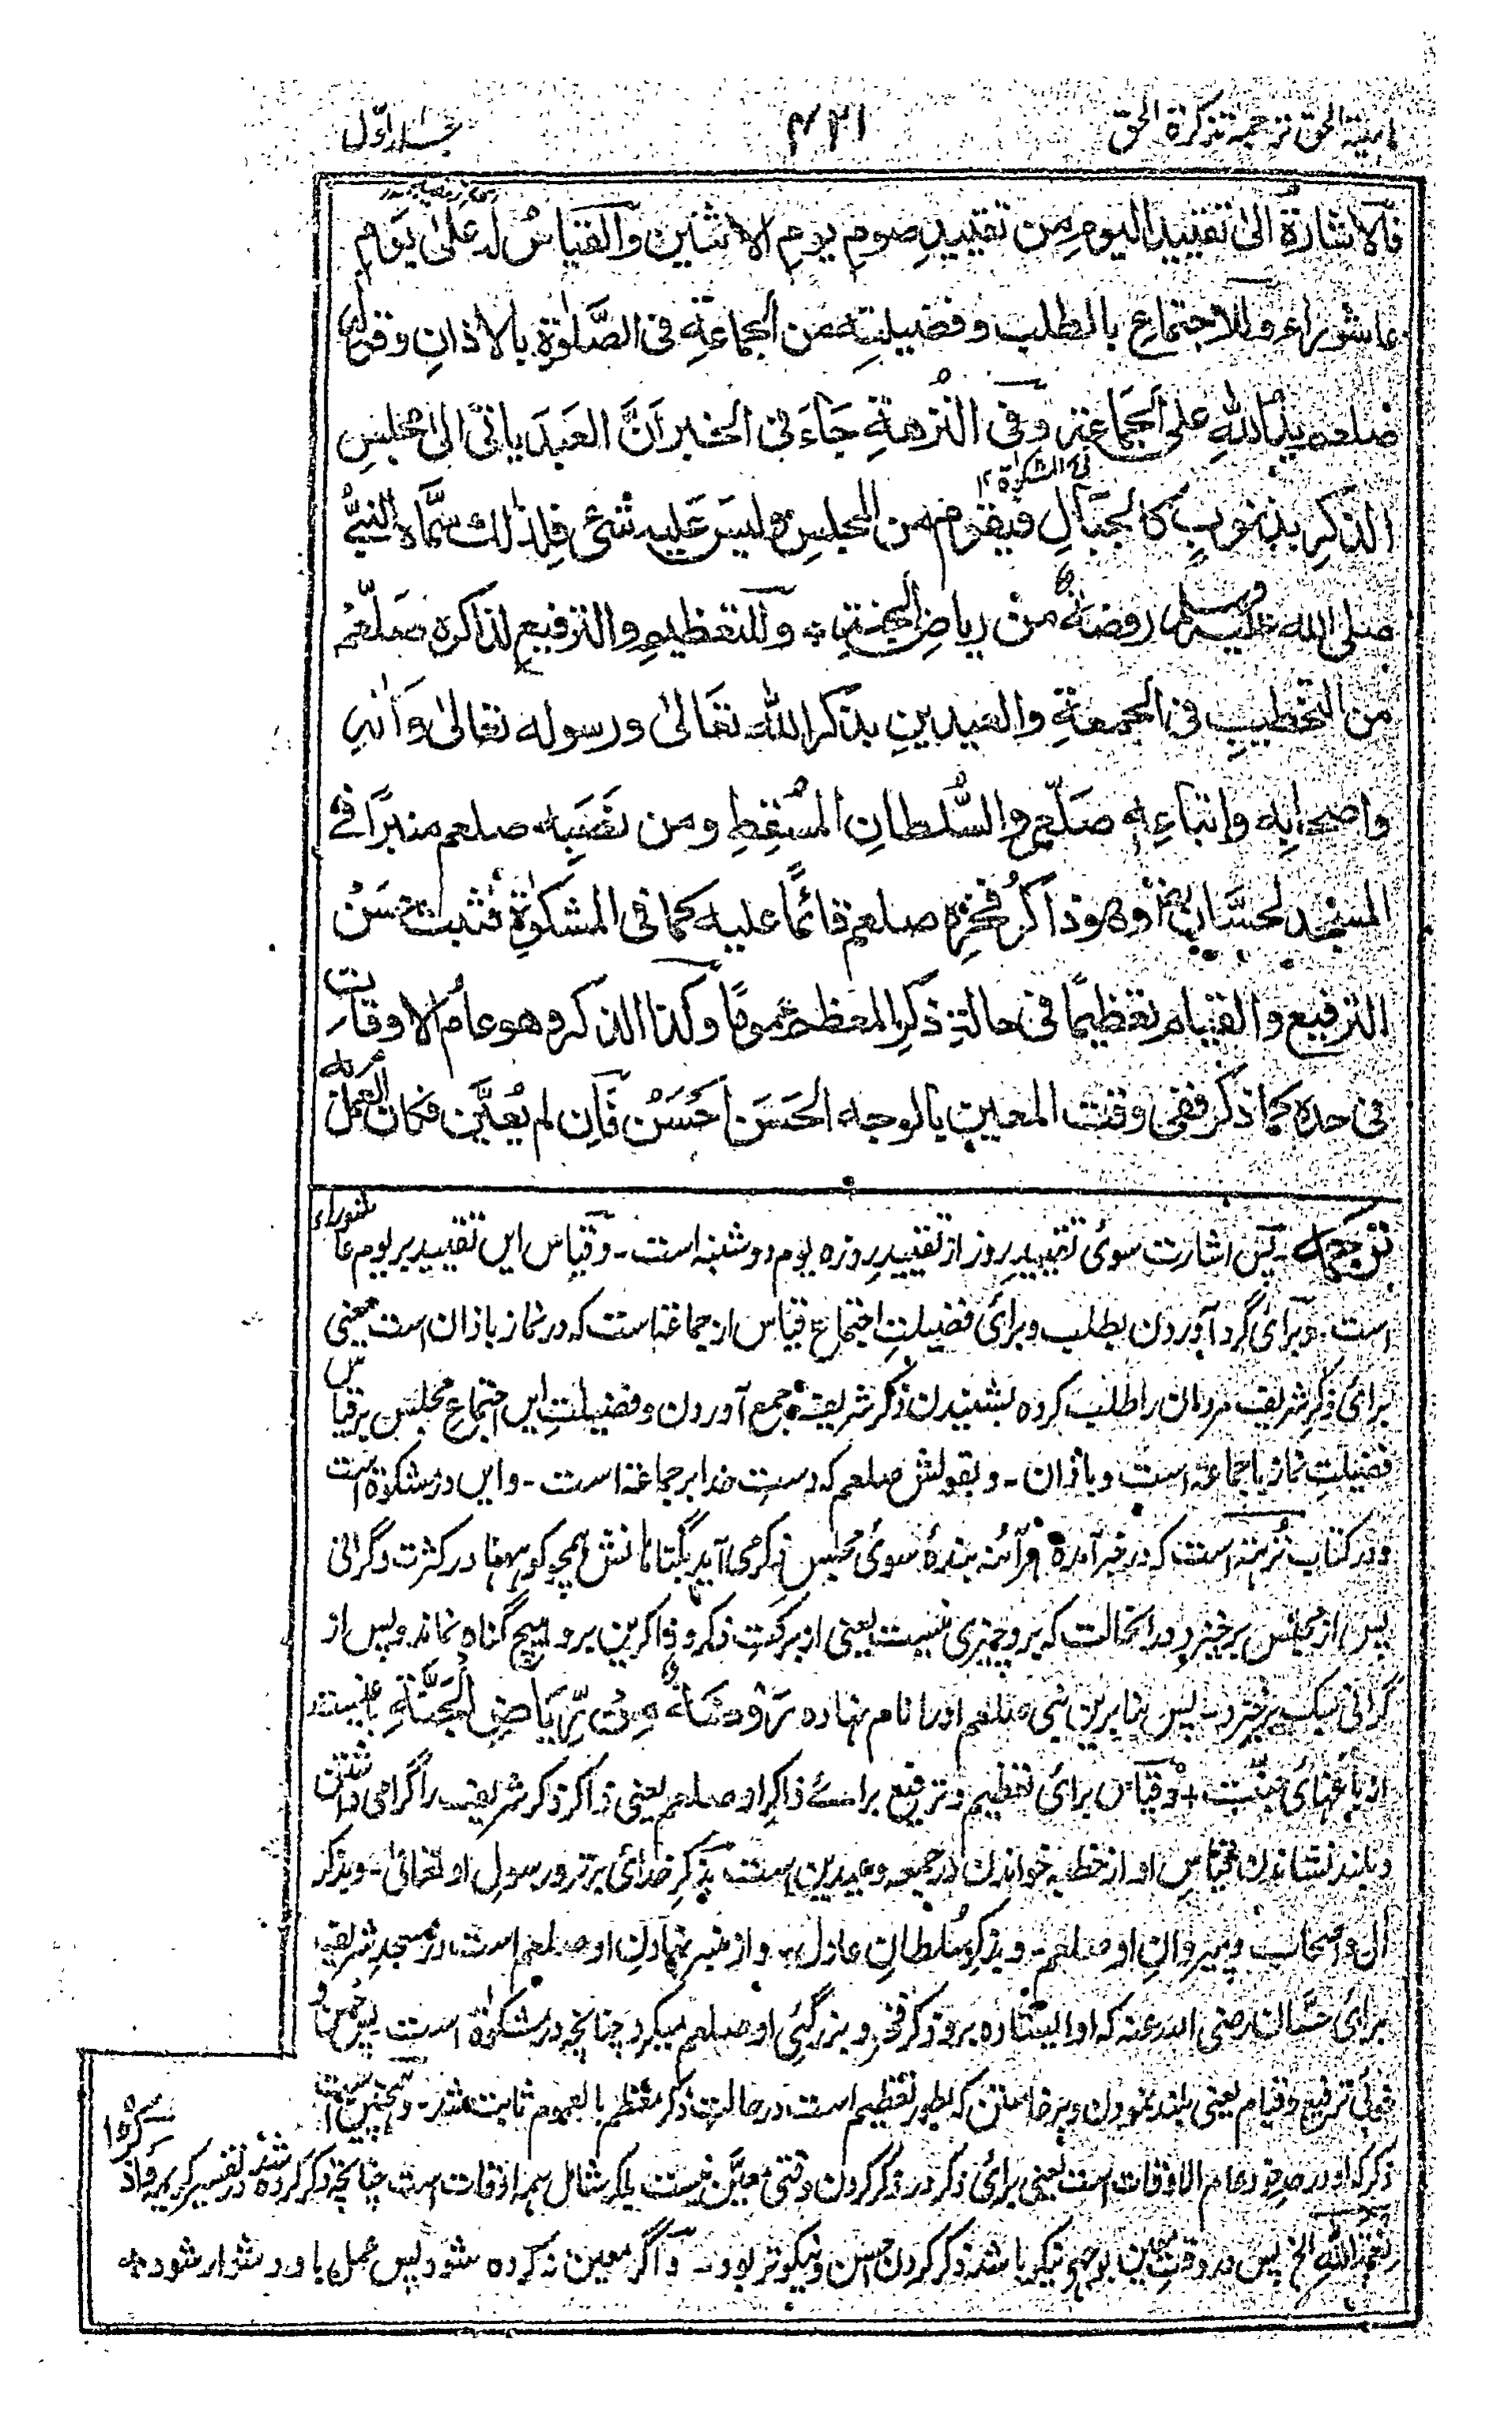 امنیة الحق ترجمة تذکرة الحق ۴۲۱ جلد اوّل
فالاشارة الی تقیید الیوم من تقیید صوم یوم الاثنین والقیاس له علی یوم
عاشوراء وللاجتماع بالطلب وفضیلته من الجماعة فی الصَّلوٰة بالاذان وقوله
صلعم ید الله علی الجماعة وفی النُزهة جَاءَ فی الخبر اَنَّ العَبدَ یاتی الی مجلس
فی المشکوٰة ۱۲
الذکر بذنوبٍ کالجبَالِ ویقوم من المجلس ولیسَ عَلیه شئ فلِذٰلك سَمَّاه النبیُّ
صلی الله علیه وسلم روضةٌ من ریاض الجنةِ + وللتعظیم والترفیع لذاکره صَلعم
من التخطیب فی الجمعة والعیدین بذکر الله تعَالیٰ ورسوله تعالیٰ وآله
واصحابه واتباعه صَلعم والسُّلطان المُقسِطِ ومن نَصَبِه صلعم منبرًا فی
المسجد لحسَّان وهو ذاکرُ فخرِه صلعم قائمًا علیه کما فی المشکوٰة فثبت حسَنُ
الترفیع والقیام تعظیمًا فی حالة ذکر المعظم عمومًا وکذا الذکر وهو عامُ الاوقات
فی حده کما ذکر ففی وقت المعین بالوجه الحَسَن اَحْسَنُ فَاِن لم یُعیَّن فکان العمل به
ترجمه - پس اشارت سوئ تقیید روز از تقیید روزه یوم دوشنبه است - وقیاس این تقیید بر یوم عاشوراء
است - وبرائ گرد آوردن بطلب وبرائ فضیلتِ اجتماع قیاس از جماعة است که در نماز باذان است یعنی
برائ ذکر شریف مردمان را طلب کرده بشنیدن ذکر شریف جمع آوردن وفضیلتِ این اجتماعِ مجلس بر قیاس
فضیلتِ نماز با جماعة است وباذان - وبقولش صلعم که دستِ خدا بر جماعة است - واین در مشکوٰة است
ودر کتاب نُزهة است که در خبر آمده هرآئنه بنده سوئ مجلسِ ذکر می آید بگناهانش همچو کوهها در کثرت وگرانی
پس از مجلس برخیزد در انحالت که برو چیزی نیست یعنی از برکتِ ذکر وذاکرین برو هیچ گناه نماند وپس از
گرانی سبک برخیزد پس بنابرین نبی صلعم اورا نام نهاده رَوْضَةٌ مِنْ رِّیَاضِ الْجَنَّةِ باغیست
از باغهائ جنّت + وقیاس برائ تعظیم وترفیع برائے ذاکر او صلعم یعنی ذاکر ذکر شریف را گرامی داشتن
وبلند نشاندن قیاسِ او از خطبه خواندن در جمعه وعیدین است بذکرِ خدائ برتر ورسول او تعالیٰ - وبذکر
آل واصحاب وپیروانِ او صلعم - وبذکر سُلطانِ عادل - واز منبر نهادن او صلعم است در مسجد شریف
برائ حسّان رضی الله عنه که او ایستاده برو ذکر فخر وبزرگئ او صلعم میکرد چنانچه در مشکوٰة است پس حُسن و
خوبی ترفیع وقیام یعنی بلند نمودن وبرخاستن که بطور تعظیم است در حالت ذکر معظم بالعموم ثابت شد - وهمچنین است
ذکر که او در حد خود عام الاوقات است یعنی برائ ذکر در ذکر کردن وقتی معیّن نیست بلکه شامل همه اوقات است چنانچه ذکر کرده شد در تفسیر کریمه واذکروا
نعمة الله الخ پس در وقت معین بوجهِ نیکو باشد ذکر کردن حسن ونیکوتر بود - واگر معین نه کرده شود پس عمل باو دشوار شود +